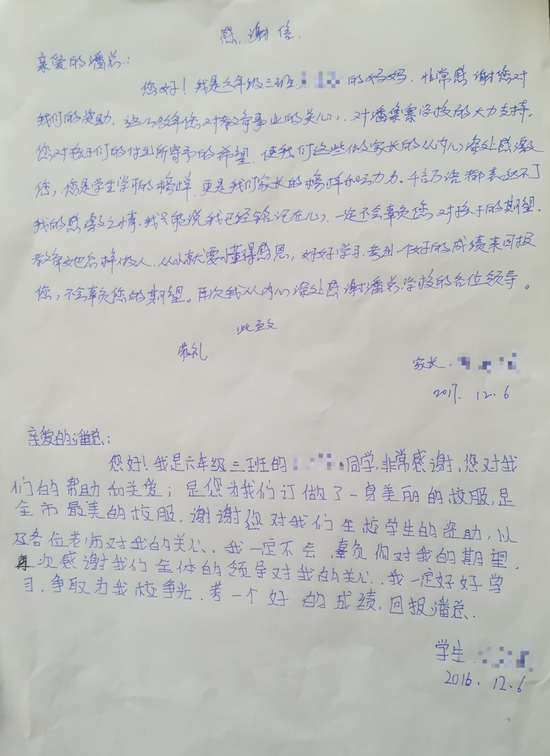 感谢信
亲爱的潘总:
您好!我是六年级三班 的妈妈,非常感谢您对
我们的资助,这么多年您对教育事业的关心,对潘集寨学校的大力支持,
您对孩子们的付出所寄予的希望,使我们这些做家长的从内心深处感激
您,您是学生学习的榜样,更是我们家长的榜样和动力。千言万语都表达不了
我的感激之情,我只能说我已经铭记在心,一定不会辜负您对孩子的期望.
教育他怎样做人,从小就要懂得感恩,好好学习,考出一个好的成绩来回报
您,不会辜负您的期望。再次我从内心深处感谢潘总学校的各位领导。
此致
敬礼
家长.
2017. 12. 6
亲爱的潘总:
您好!我是六年级三班的 同学,非常感谢,您对我
们的帮助和关爱;是您为我们订做了一身美丽的校服,是
全市最美的校服,谢谢您对我们全校学生的资助,以
及各位老师对我的关心,我一定不会,辜负你对我的期望,
再次感谢我们全体的领导对我的关心,我一定好好学
习,争取为我校争光,考一个好的成绩,回报潘总.
学生
2016. 12. 6